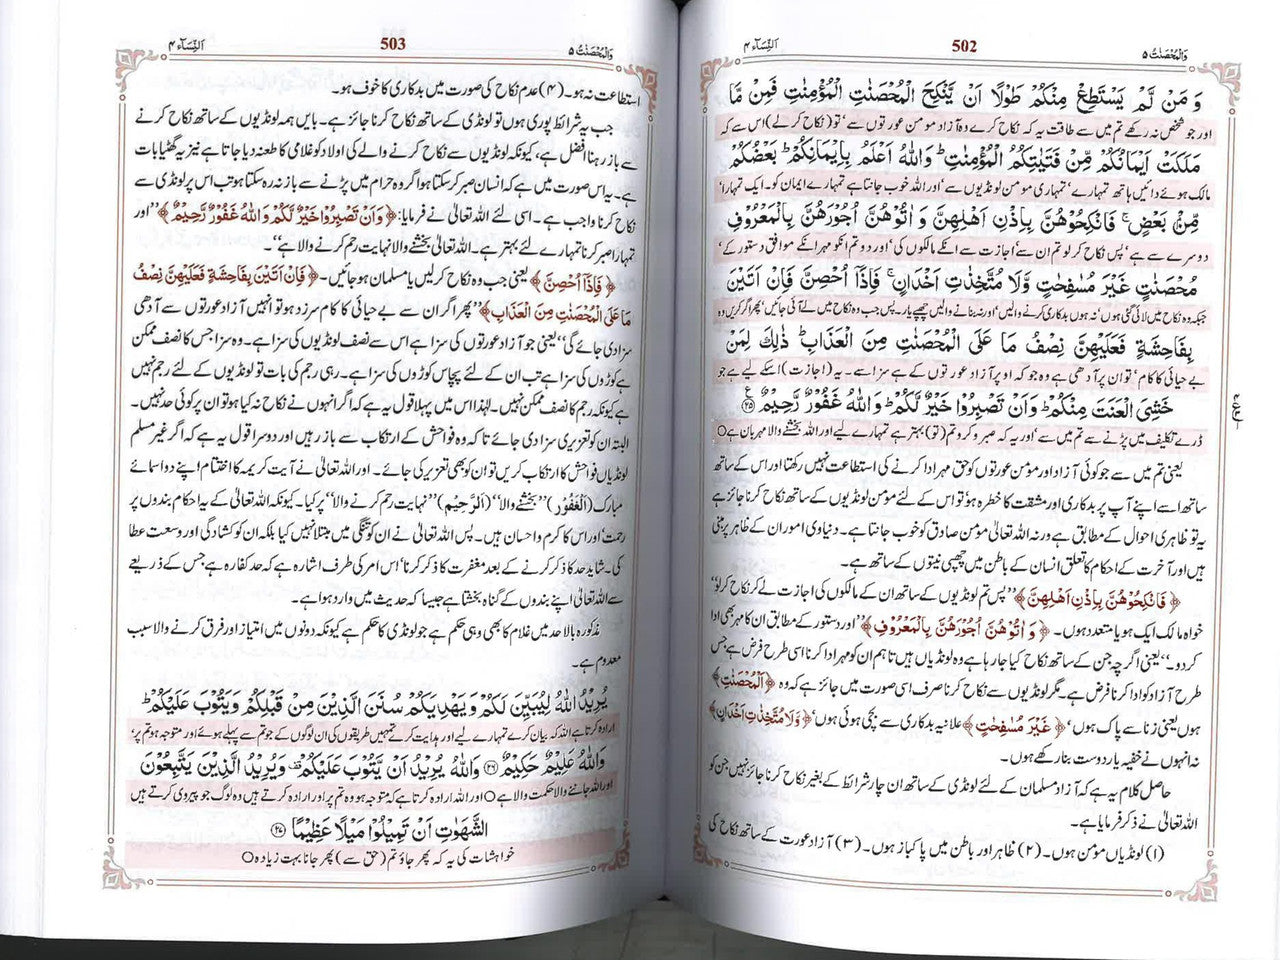 وَالْمُحْصَنٰتُ ۵
502
اَلنِّسَآء ۴
وَ مَنْ لَّمْ یَسْتَطِعْ مِنْکُمْ طَوْلًا اَنْ یَّنْکِحَ الْمُحْصَنٰتِ الْمُؤْمِنٰتِ فَمِنْ مَّا
اور جو شخص نہ رکھے تم میں سے طاقت یہ کہ نکاح کرے وہ آزاد مومن عورتوں سے' تو (نکاح کرلے) اس سے کہ
مَلَکَتْ اَیْمَانُکُمْ مِّنْ فَتَیٰتِکُمُ الْمُؤْمِنٰتِ ؕ وَاللّٰہُ اَعْلَمُ بِاِیْمَانِکُمْ ؕ بَعْضُکُمْ
مالک ہوئے دائیں ہاتھ تمہارے' تمہاری مومن لونڈیوں سے' اور اللہ خوب جانتا ہے تمہارے ایمان کو۔ ایک تمہارا'
مِّنْۢ بَعْضٍ ۚ فَانْکِحُوْھُنَّ بِاِذْنِ اَھْلِھِنَّ وَ اٰتُوْھُنَّ اُجُوْرَھُنَّ بِالْمَعْرُوْفِ
دوسرے سے ہے' پس نکاح کرلو تم ان سے' اجازت سے انکے مالکوں کی' اور دو تم انکو مہر انکے موافق دستور کے'
مُحْصَنٰتٍ غَیْرَ مُسٰفِحٰتٍ وَّلَا مُتَّخِذٰتِ اَخْدَانٍ ۚ فَاِذَاۤ اُحْصِنَّ فَاِنْ اَتَیْنَ
جبکہ وہ نکاح میں لائی گئی ہوں' نہ ہوں بدکاری کرنے والیں' اور نہ بنانے والیں چھپے یار۔ پس جب وہ نکاح میں لے آئی جائیں' پھر اگر کریں وہ
بِفَاحِشَةٍ فَعَلَیْھِنَّ نِصْفُ مَا عَلَی الْمُحْصَنٰتِ مِنَ الْعَذَابِ ؕ ذٰلِکَ لِمَنْ
بے حیائی کا کام' تو ان پر آدھی ہے وہ جو کہ اوپر آزاد عورتوں کے ہے سزا سے۔ یہ (اجازت) اسکے لیے ہے جو
خَشِیَ الْعَنَتَ مِنْکُمْ ؕ وَ اَنْ تَصْبِرُوْا خَیْرٌ لَّکُمْ ؕ وَاللّٰہُ غَفُوْرٌ رَّحِیْمٌ ۲۵
ڈرے تکلیف میں پڑنے سے تم میں سے' اور یہ کہ صبر کرو تم (تو) بہتر ہے تمہارے لیے اور اللہ بخشنے والا مہربان ہے ○
یعنی تم میں سے جو کوئی آزاد اور مؤمن عورتوں کو حق مہر ادا کرنے کی استطاعت نہیں رکھتا اور اس کے ساتھ
ساتھ اسے اپنے آپ پر بدکاری اور مشقت کا خطرہ ہو تو اس کے لئے مؤمن لونڈیوں کے ساتھ نکاح کرنا جائز ہے
یہ تو ظاہری احوال کے مطابق ہے ورنہ اللہ تعالیٰ مؤمن صادق کو خوب جانتا ہے۔ دنیاوی امور ان کے ظاہر پر مبنی
ہیں اور آخرت کے احکام کا تعلق انسان کے باطن میں چھپی نیتوں کے ساتھ ہے۔
﴿فَانْکِحُوْھُنَّ بِاِذْنِ اَھْلِھِنَّ﴾ ''پس تم لونڈیوں کے ساتھ ان کے مالکوں کی اجازت لے کر نکاح کرلو''
خواہ مالک ایک ہو یا متعدد ہوں۔ ﴿وَ اٰتُوْھُنَّ اُجُوْرَھُنَّ بِالْمَعْرُوْفِ﴾ ''اور دستور کے مطابق ان کا مہر بھی ادا
کر دو۔'' یعنی اگرچہ جن کے ساتھ نکاح کیا جا رہا ہے وہ لونڈیاں ہیں تاہم ان کو مہر ادا کرنا اسی طرح فرض ہے جس
طرح آزاد کو ادا کرنا فرض ہے۔ مگر لونڈیوں سے نکاح کرنا صرف اسی صورت میں جائز ہے کہ وہ ﴿اَلْمُحْصَنٰتِ﴾
ہوں یعنی زنا سے پاک ہوں' ﴿غَیْرَ مُسٰفِحٰتٍ﴾ علانیہ بدکاری سے بچی ہوئی ہوں' ﴿وَلَا مُتَّخِذٰتِ اَخْدَانٍ﴾
نہ انہوں نے خفیہ یار دوست بنا رکھے ہوں۔
حاصل کلام یہ ہے کہ آزاد مسلمان کے لئے لونڈی کے ساتھ ان چار شرائط کے بغیر نکاح کرنا جائز نہیں جن کو
اللہ تعالیٰ نے ذکر فرمایا ہے۔
(۱) لونڈیاں مؤمن ہوں۔ (۲) ظاہر اور باطن میں پاکباز ہوں۔ (۳) آزاد عورت کے ساتھ نکاح کی
وَالْمُحْصَنٰتُ ۵
503
اَلنِّسَآء ۴
استطاعت نہ ہو۔ (۴) عدم نکاح کی صورت میں بدکاری کا خوف ہو۔
جب یہ شرائط پوری ہوں تو لونڈی کے ساتھ نکاح کرنا جائز ہے۔ بایں ہمہ لونڈیوں کے ساتھ نکاح کرنے
سے باز رہنا افضل ہے، کیونکہ لونڈیوں سے نکاح کرنے والے کی اولاد کو غلامی کا طعنہ دیا جاتا ہے نیز یہ گھٹیا بات
ہے۔ یہ اس صورت میں ہے کہ انسان صبر کر سکتا ہو اگر وہ حرام میں پڑنے سے باز نہ رہ سکتا ہو تب اس پر لونڈی سے
نکاح کرنا واجب ہے۔ اسی لئے اللہ تعالیٰ نے فرمایا: ﴿وَاَنْ تَصْبِرُوْا خَیْرٌ لَّکُمْ وَاللّٰہُ غَفُوْرٌ رَّحِیْمٌ﴾ ''اور
تمہارا صبر کرنا تمہارے لئے بہتر ہے۔ اللہ تعالیٰ بخشنے والا نہایت رحم کرنے والا ہے''۔
﴿فَاِذَاۤ اُحْصِنَّ﴾ یعنی جب وہ نکاح کرلیں یا مسلمان ہو جائیں۔ ﴿فَاِنْ اَتَیْنَ بِفَاحِشَةٍ فَعَلَیْھِنَّ نِصْفُ
مَا عَلَی الْمُحْصَنٰتِ مِنَ الْعَذَابِ﴾ ''پھر اگر ان سے بے حیائی کا کام سرزد ہو تو انہیں آزاد عورتوں سے آدھی
سزا دی جائے گی'' یعنی جو آزاد عورتوں کی سزا ہے اس سے نصف لونڈیوں کی سزا ہے۔ وہ سزا جس کا نصف ممکن
ہے کوڑوں کی سزا ہے تب ان کے لئے پچاس کوڑوں کی سزا ہے۔ رہی رجم کی بات تو لونڈیوں کے لئے رجم نہیں
ہے کیونکہ رجم کا نصف ممکن نہیں۔ لہٰذا اس میں پہلا قول یہ ہے کہ اگر انہوں نے نکاح نہ کیا ہو تو ان پر کوئی حد نہیں۔
البتہ ان کو تعزیری سزا دی جائے تاکہ وہ فواحش کے ارتکاب سے باز رہیں اور دوسرا قول یہ ہے کہ اگر غیر مسلم
لونڈیاں فواحش کا ارتکاب کریں تو ان کو بھی تعزیر کی جائے۔ اور اللہ تعالیٰ نے آیت کریمہ کا اختتام اپنے دو اسمائے
مبارک (اَلْغَفُوْر) ''بخشنے والا'' (اَلرَّحِیْم) ''نہایت رحم کرنے والا'' پر کیا۔ کیونکہ اللہ تعالیٰ کے یہ احکام بندوں پر
رحمت' اور اس کا کرم و احسان ہیں۔ پس اللہ تعالیٰ نے ان کو تنگی میں مبتلا نہیں کیا بلکہ ان کو کشادگی اور وسعت عطا
کی۔ شاید حد کا ذکر کرنے کے بعد مغفرت کا ذکر کرنا' اس امر کی طرف اشارہ ہے کہ حد کفارہ ہے جس کے ذریعے
سے اللہ تعالیٰ اپنے بندوں کے گناہ بخشتا ہے جیسا کہ حدیث میں وارد ہوا ہے۔
مذکورہ بالا حد میں غلام کا بھی وہی حکم ہے جو لونڈی کا حکم ہے کیونکہ دونوں میں امتیاز اور فرق کرنے والا سبب
معدوم ہے۔
یُرِیْدُ اللّٰہُ لِیُبَیِّنَ لَکُمْ وَ یَھْدِیَکُمْ سُنَنَ الَّذِیْنَ مِنْ قَبْلِکُمْ وَ یَتُوْبَ عَلَیْکُمْ ؕ
ارادہ کرتا ہے اللہ کہ بیان کرے تمہارے لیے اور ہدایت کرے تمہیں طریقوں کی ان لوگوں کے جو تم سے پہلے ہوئے اور متوجہ ہو تم پر'
وَاللّٰہُ عَلِیْمٌ حَکِیْمٌ ۲۶ وَاللّٰہُ یُرِیْدُ اَنْ یَّتُوْبَ عَلَیْکُمْ ۟ وَ یُرِیْدُ الَّذِیْنَ یَتَّبِعُوْنَ
اور اللہ جاننے والا حکمت والا ہے ○ اور اللہ ارادہ کرتا ہے کہ متوجہ ہو وہ تم پر اور ارادہ کرتے ہیں وہ لوگ جو پیروی کرتے ہیں
الشَّھَوٰتِ اَنْ تَمِیْلُوْا مَیْلًا عَظِیْمًا ۲۷
خواہشات کی یہ کہ پھر جاؤ تم (حق سے) پھر جانا بہت زیادہ ○